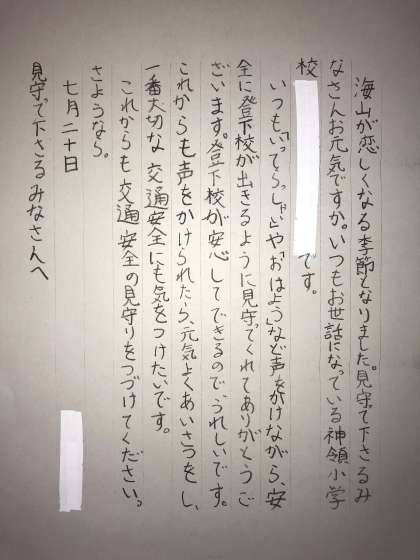 海山が恋しくなる季節となりました。見守て下さるみ
なさんお元気ですか。いつもお世話になっている神領小学
校
です。
いつも「いってらっしゃい」や「おはよう」など声をかけながら、安
全に登下校が出きるように見守てくれてありがとうご
ざいます。登下校が安心してできるのでうれしいです。
これからも声をかけられたら、元気よくあいさつをし、
一番大切な交通安全にも気をつけたいです。
これからも交通安全の見守りをつづけてください。
さようなら。
七月二十日
見守て下さるみなさんへ